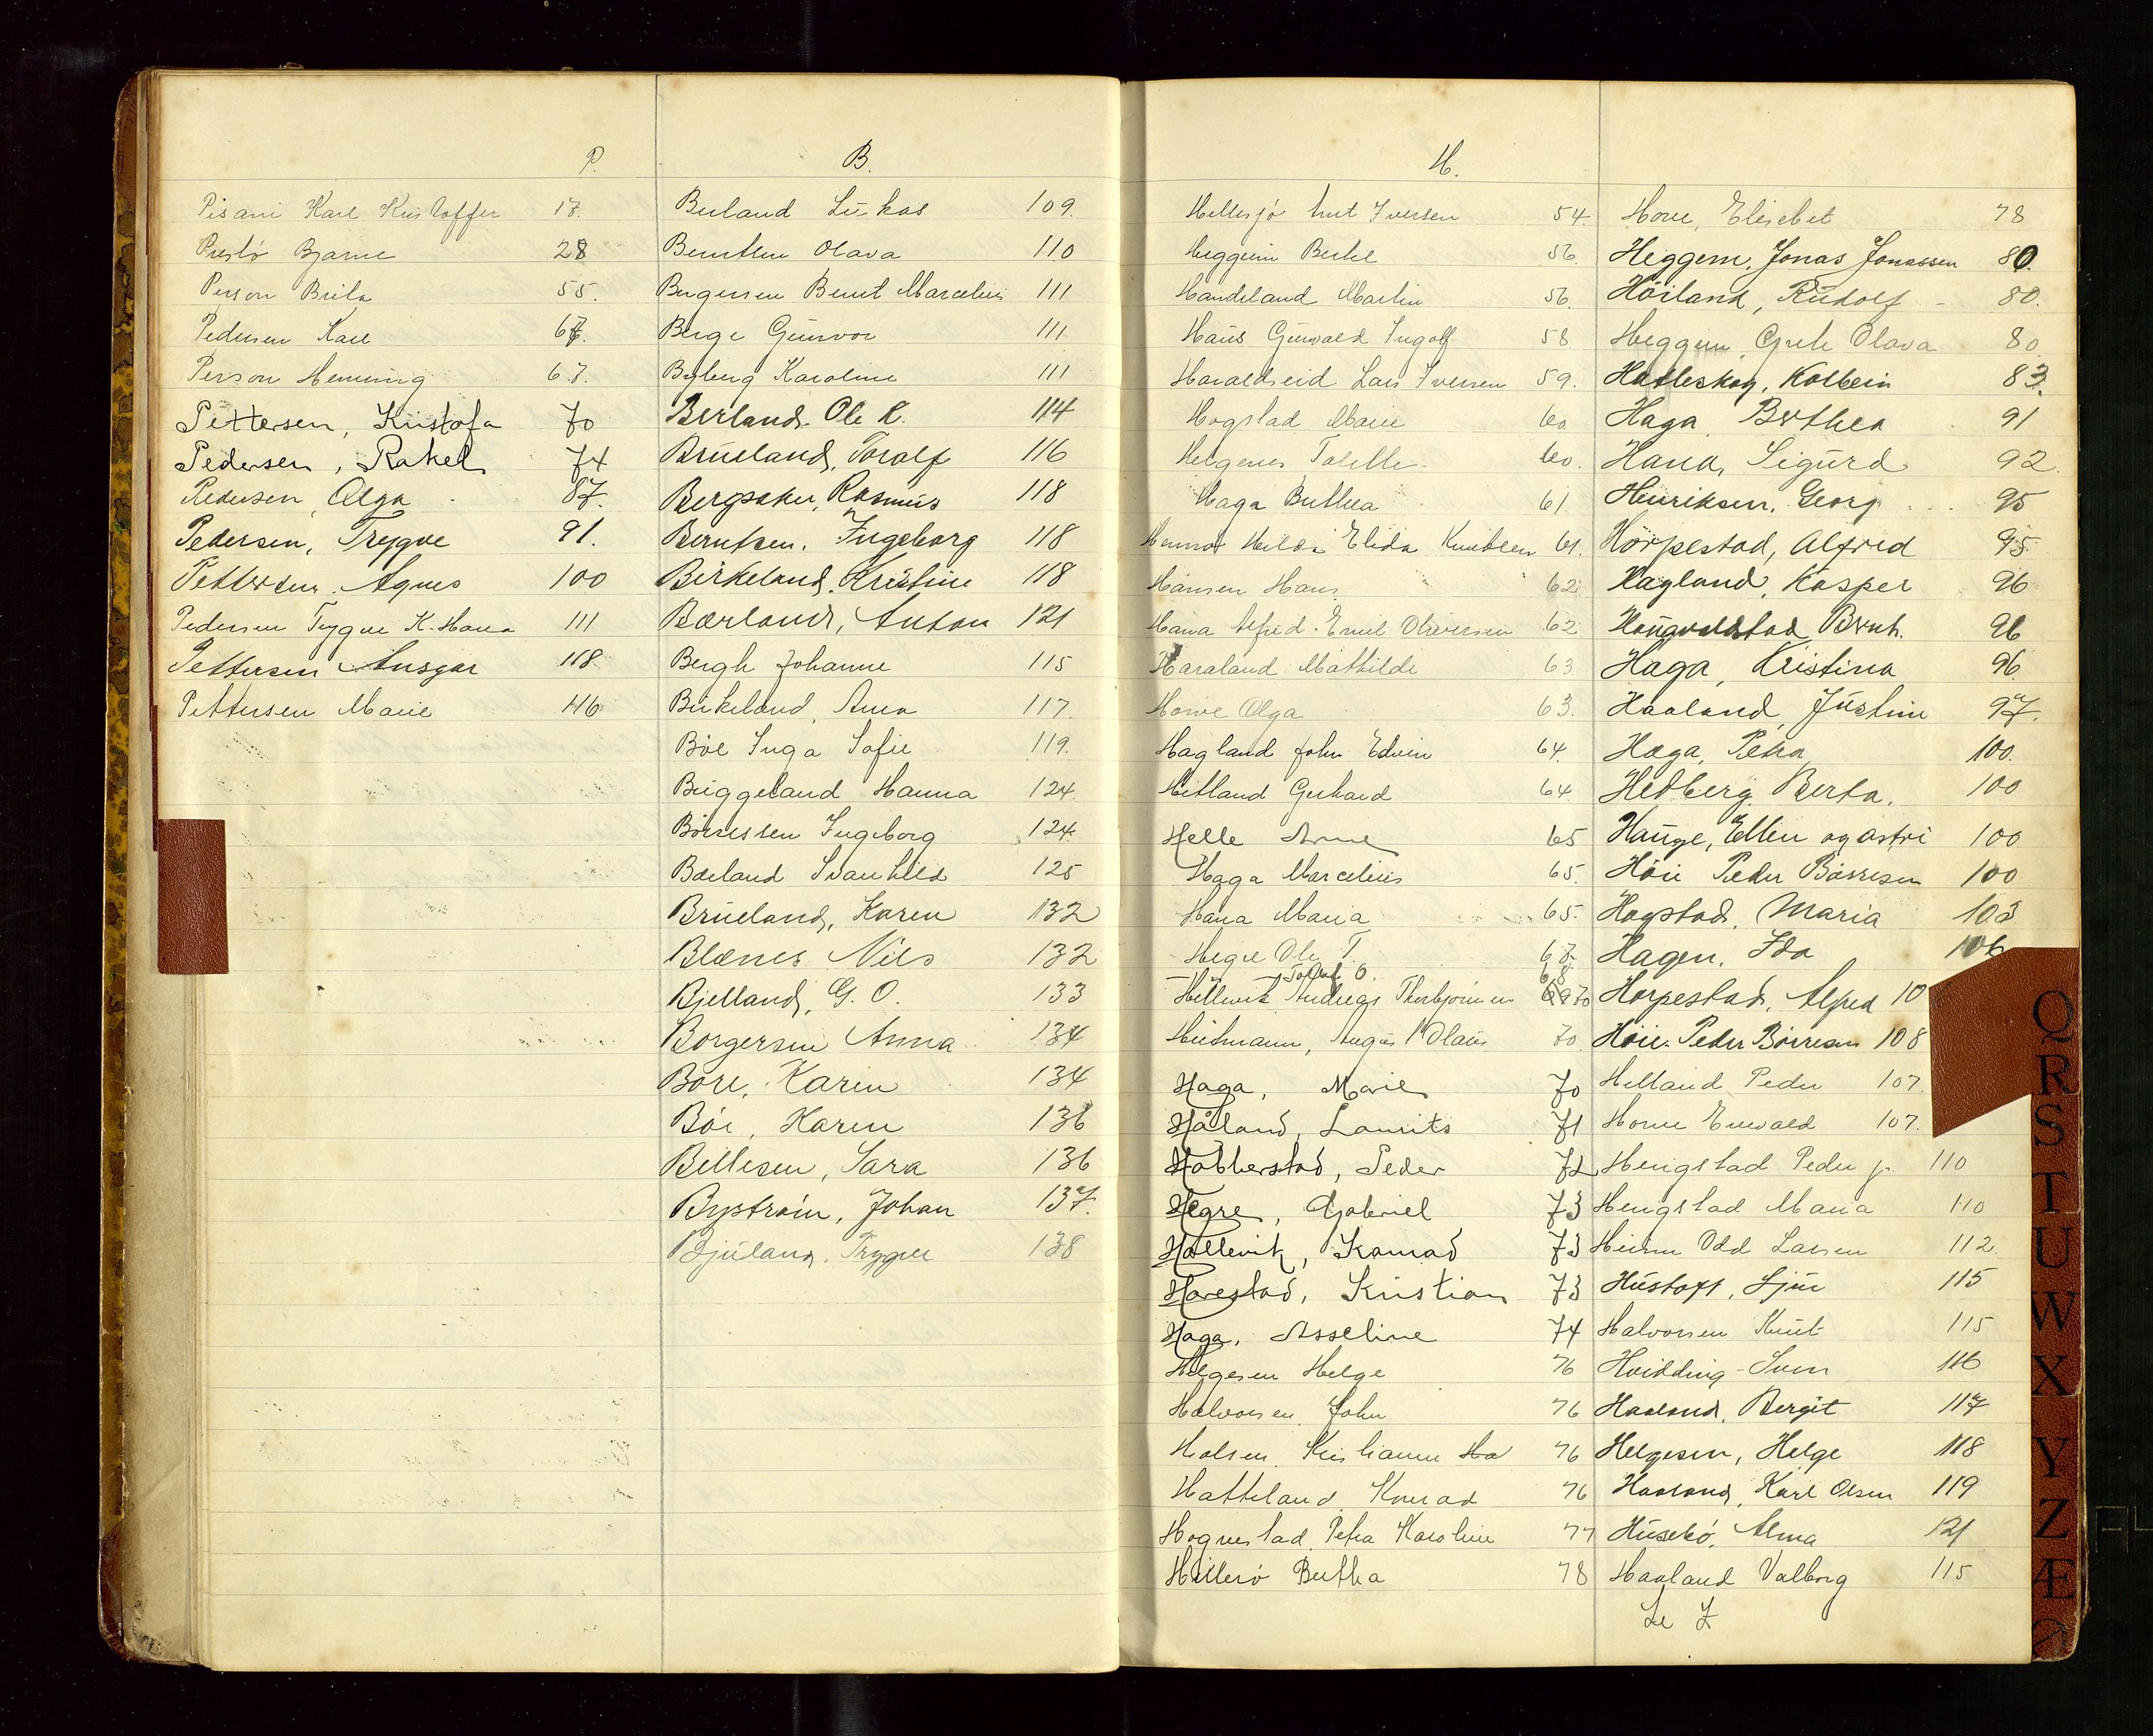 P.
Pisani Karl Kristoffer 17.
Prestö Bjarne 28
Person Brita 55.
Pedersen Karl 67.
Person Henning 67.
Pettersen, Kristofa 70
Pedersen, Rakel 74
Pedersen, Olga 87.
Pedersen, Trygve 91.
Pettersen, Agnes 100
Pedersen Trygve K. Hana 111
Pettersen Ansgar 118.
Pettersen Marie 116
B.
Berland Lukas 109.
Berntsen Olava 110
Bergersen Bernt Marcelius 111
Berge Gunvor 111
Byberg Karoline 111
Berland, Ole K. 114
Brueland, Toralf 116
Bergsaker, Rasmus 118
Berntsen, Ingeborg 118
Birkeland, Kristine 118
Bærland, Anton 121
Bergh Johanne 115
Birkeland, Anna 117.
Böe Inga Sofie 119.
Buggeland Hanna 124.
Börresen Ingeborg 124.
Bærland Svanhild 125
Brueland, Karen 132
Blænes Nils 132
Bjelland, G. O. 133
Borgersen Anna 134
Bore, Karin 134
Böe, Karen 136
Bellesen, Sara 136
Byström, Johan 137.
Bjuland, Trygve 138
H.
Hellesjö Iversen 54.
Heggem Bertel 56.
Handeland Martin 56.
Haus Gunvald Ingolf 58
Haraldseid Lars Iversen 59.
Hogstad Marie 60
Helgenes Tolette 60.
Haga Buthea 61
Hilda Elida Knutsen 61.
Hansen Hans 62.
Hana Alfred Emil Oliversen 62
Haraland Mathilde 63
Howe Olga 63.
Hagland John Edvin 64.
Hetland Gerhard 64.
Helle Arne 65
Haga Marcelius 65.
Hana Maria 65.
Hegre Ole T. 67.
Toralf O. 68
Hillevik Andreas Thorbjörnsen 70
Heitmann, August Olaus 70
Haga, Marie 70
Håland, Laurits 71
Habberstad, Peder 72
Hegre, Gabriel 73
Hallevik, Konrad 73
Harestad, Kristian 73
Haga, Asseline 74
Helgesen Helge 76
Halvorsen, John 76
Holsen, Kristianne Ha 76
Hatteland, Konrad 76
Hognestad, Petra Karoline 77
Hillesö Bertha 78
Hove, Elisebet 78
Heggem, Jonas Jonassen 80.
Höiland, Rudolf - 80.
Heggem, Grete Olava 80
Hatleskog, Kolbein 83.
Haga, Berthea 91
Hana, Sigurd 92.
Henriksen, Georg 95
Hörpestad, Alfred 95.
Hagland, Kasper 96
Haugvaldstad, Bernh. 96
Haga, Kristina 96
Haaland, Justine 97.
Haga, Petra 100.
Hedberg Berta, 100
Hauge, Ellen og Astri 100
Höie Peder Börresen 100
Hogstad, Maria 103
Hagen, Ida 106
Horpestad, Alfred 10
Höie. Peder Börresen 108
Helland Peder 107.
Howe Enevald 107.
Hengstad Peder jr. 110
Hengstad Maria 110
Odd Larsen 112.
Hustoft, Sjur 115
Halvorsen Knut 115
Hvidding - Sven 116
Haaland, Bergit 117
Helgesen, Helge 118
Haaland, Karl Olsen 119
Husebö, Alma 121
Haaland Valborg 115
Se Z
Q
R
S
T
U
W
X
Y
Z
Æ